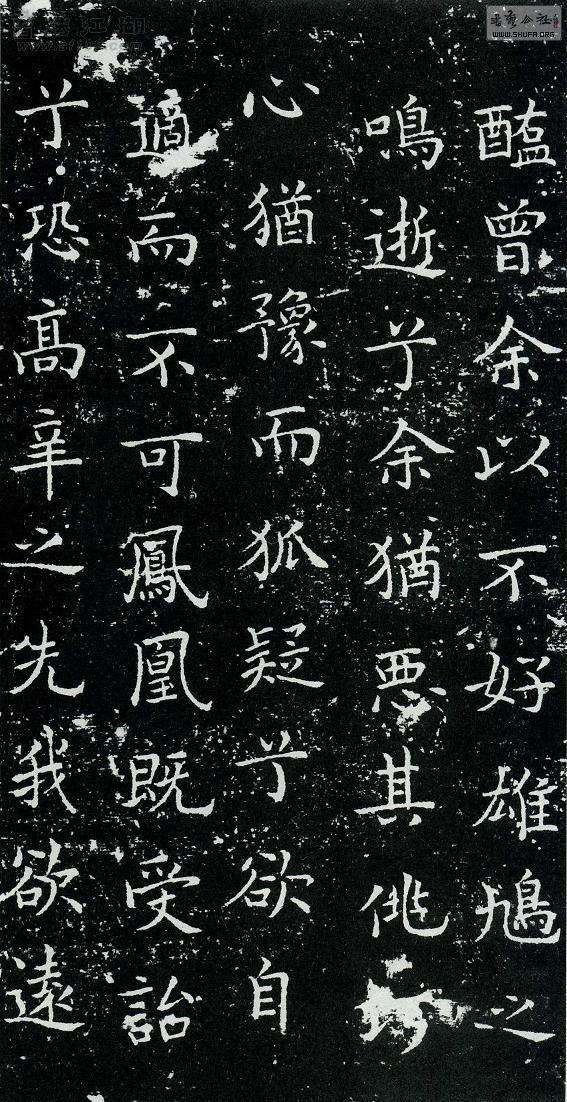 醘曾余以不好雄鳩之
鳴逝兮余猶悪其佻巧
心猶豫而狐疑兮欲自
適而不可鳳凰既受詒
兮恐髙辛之先我欲遠
WWW.SHUFA.ORG